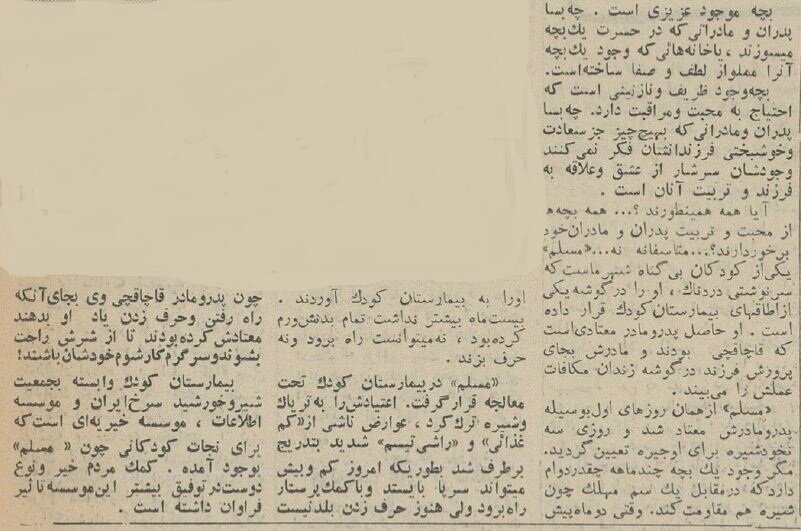 بچه موجود عزیزی است . چه‌بسا
پدران و مادرانی‌که در حسرت یك‌بچه
میسوزند ، یاخانه‌هائی‌که وجود یك‌بچه
آنرا مملواز لطف و صفا ساخته‌است.
بچه‌وجود ظریف ونازنینی است که
احتیاج به محبت ومراقبت دارد. چه‌بسا
پدران ومادرانی‌که بهیچ‌چیز جز سعادت
وخوشبختی فرزندانشان فکر نمی‌کنند
وجودشان سرشار از عشق وعلاقه به
فرزند و تربیت آنان است .
آیا همه همینطورند ؟... همه بچه‌ها
از محبت و تربیت پدران و مادران‌خود
برخوردارند؟...متاسفانه نه...«مسلم»
یکی‌از کودکان بی‌گناه شهر ماست‌که
سرنوشتی دردناك ، او را درگوشه‌یکی
ازاطاقهای بیمارستان کودك قرار داده
است . او حاصل پدرومادر معتادی‌است
که قاچاقچی بودند و مادرش بجای
پرورش فرزند درگوشه زندان مکافات
عملش را می‌بیند .
«مسلم» ازهمان روزهای اول‌بوسیله
پدرومادرش معتاد شد و روزی سه
نخودشیره برای اوجیره تعیین‌گردید.
مگر وجود یك بچه چندماهه چقدردوام
داردکه درمقابل یك سم مهلك چون
شیره هم مقاومت‌کند. وقتی دوماه‌پیش
اورا به بیمارستان کودك آوردند .
بیست‌ماه بیشتر نداشت تمام بدنش‌ورم
کرده‌بود ، نه‌میتوانست راه برود ونه
حرف بزند .
«مسلم» دربیمارستان کودك تحت
معالجه قرارگرفت. اعتیادش‌را به‌تریاك
وشیره ترك‌کرد ، عوارض ناشی از«کم
غذائی» و «راشی‌تیسم» شدید بتدریج
برطرف شد بطوریکه امروز کم وبیش
میتواند سرپا بایستد وباکمك‌پرستار
راه‌برود ولی هنوز حرف زدن بلدنیست
چون پدرومادر قاچاقچی وی بجای‌آنکه
راه رفتن وحرف زدن یاد او بدهند
معتادش کرده‌بودند تا از شرش راحت
بشوندوسرگرم‌کارشوم‌خودشان‌باشند!
بیمارستان کودك وابسته بجمعیت
شیروخورشید سرخ‌ایران و موسسه
اطلاعات ، موسسه خیریه‌ای است‌که
برای نجات کودکانی چون « مسلم»
بوجود آمده . کمك مردم خیر ونوع
دوست‌درتوفیق بیشتر این‌موسسه‌تاثیر
فراوان داشته است .